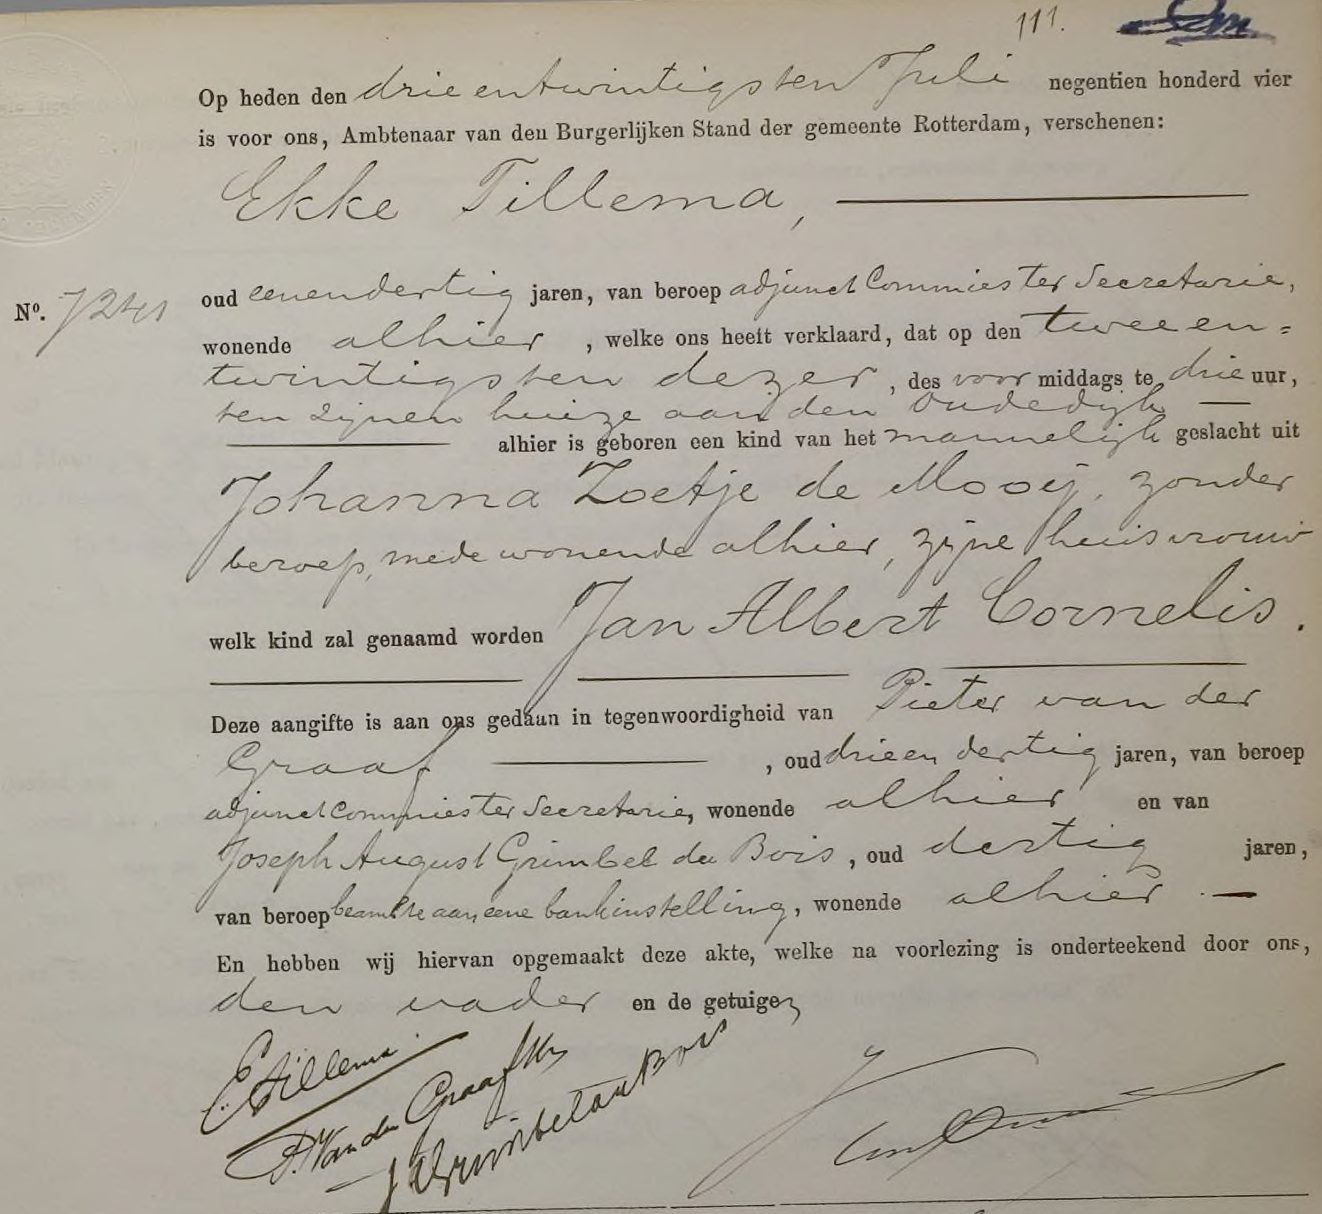 111.
Op heden den drie en twintigsten Juli negentien honderd vier
is voor ons, Ambtenaar van den Burgerlijken Stand der gemeente Rotterdam, verschenen:
Ekke Tillema,
oud eenendertig jaren, van beroep adjunct Commies ter Secretarie,
No. 7241
wonende alhier, welke ons heeft verklaard, dat op den twee en=
twintigsten dezer, des voormiddags te drie uur,
ten zijnen huize aan den Oudedijk
alhier is geboren een kind van het mannelijk geslacht uit
Johanna Zoetje de Mooij, zonder
beroep, mede wonende alhier, zijne huisvrouw
welk kind zal genaamd worden Jan Albert Cornelis.
Deze aangifte is aan ons gedaan in tegenwoordigheid van Pieter van der
Graaf, oud drie en dertig jaren, van beroep
adjunct commies ter Secretarie, wonende alhier en van
Joseph August Grimbel du Bois, oud dertig jaren,
van beroep beambte aan eene bankinstelling, wonende alhier.
En hebben wij hiervan opgemaakt deze akte, welke na voorlezing is onderteekend door ons,
den vader en de getuigen
E Tillema.
P. Van der Graaf
J A Grimbel du Bois